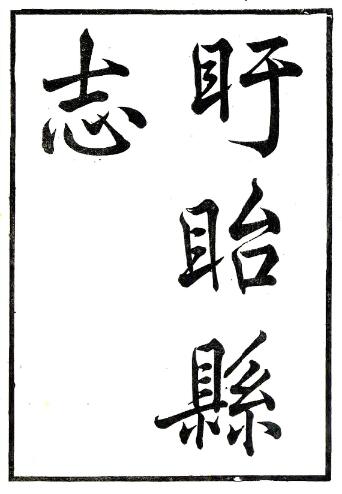 盱眙縣
志